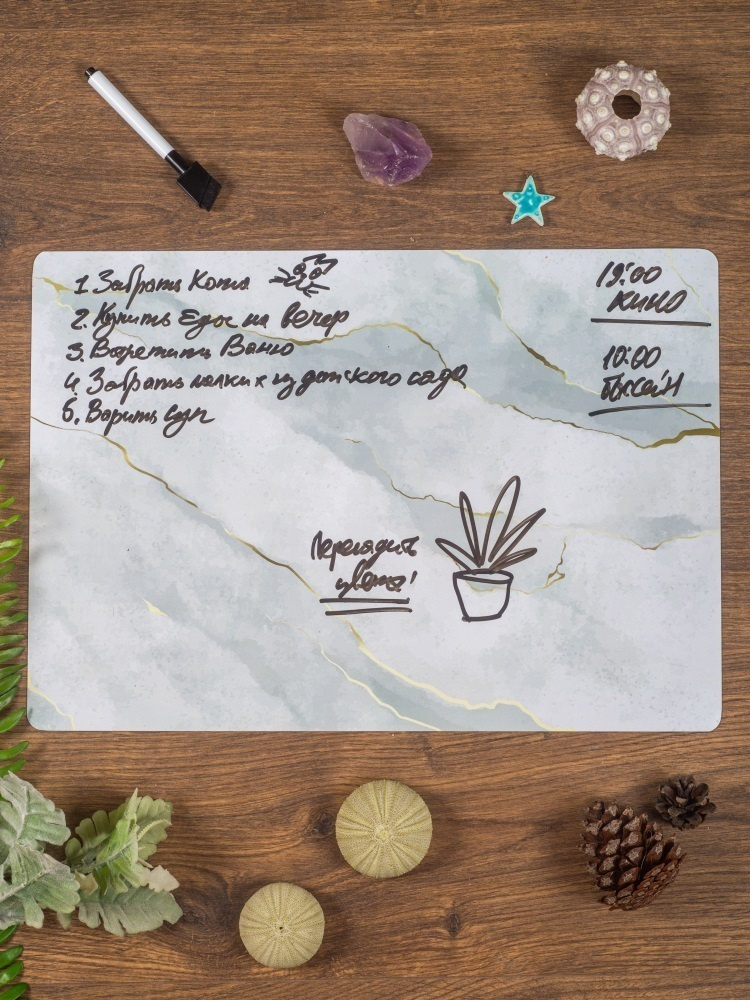 1. Забрать Кота
2. Купить Еды на вечер
3. Встретить Ваню
4. Забрать из детского сада
5. Варить суп
19:00
КИНО
10:00
Бассейн
Пересадить
цветы!